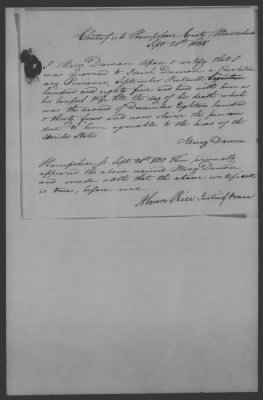 Chesterfield Hampshire County Massachusetts
Sept. 20th 1838
I Mercy Damon depose & certify that I
was married to Isaac Damon a Revolution
ary Pensioner, September Twentieth Seventeen
hundred and eighty five and lived with him as
his lawful wife till the day of his death which
was the second of December Eighteen hundred
& thirty four and now claim the pension
due to him agreeable to the laws of the
United States
Mercy Damon
Hampshire Ss Sept. 20th 1838 Then personally
appeared the above named Mercy Damon
and made oath that the above
is true, before me
Alvan Rice Justice of Peace